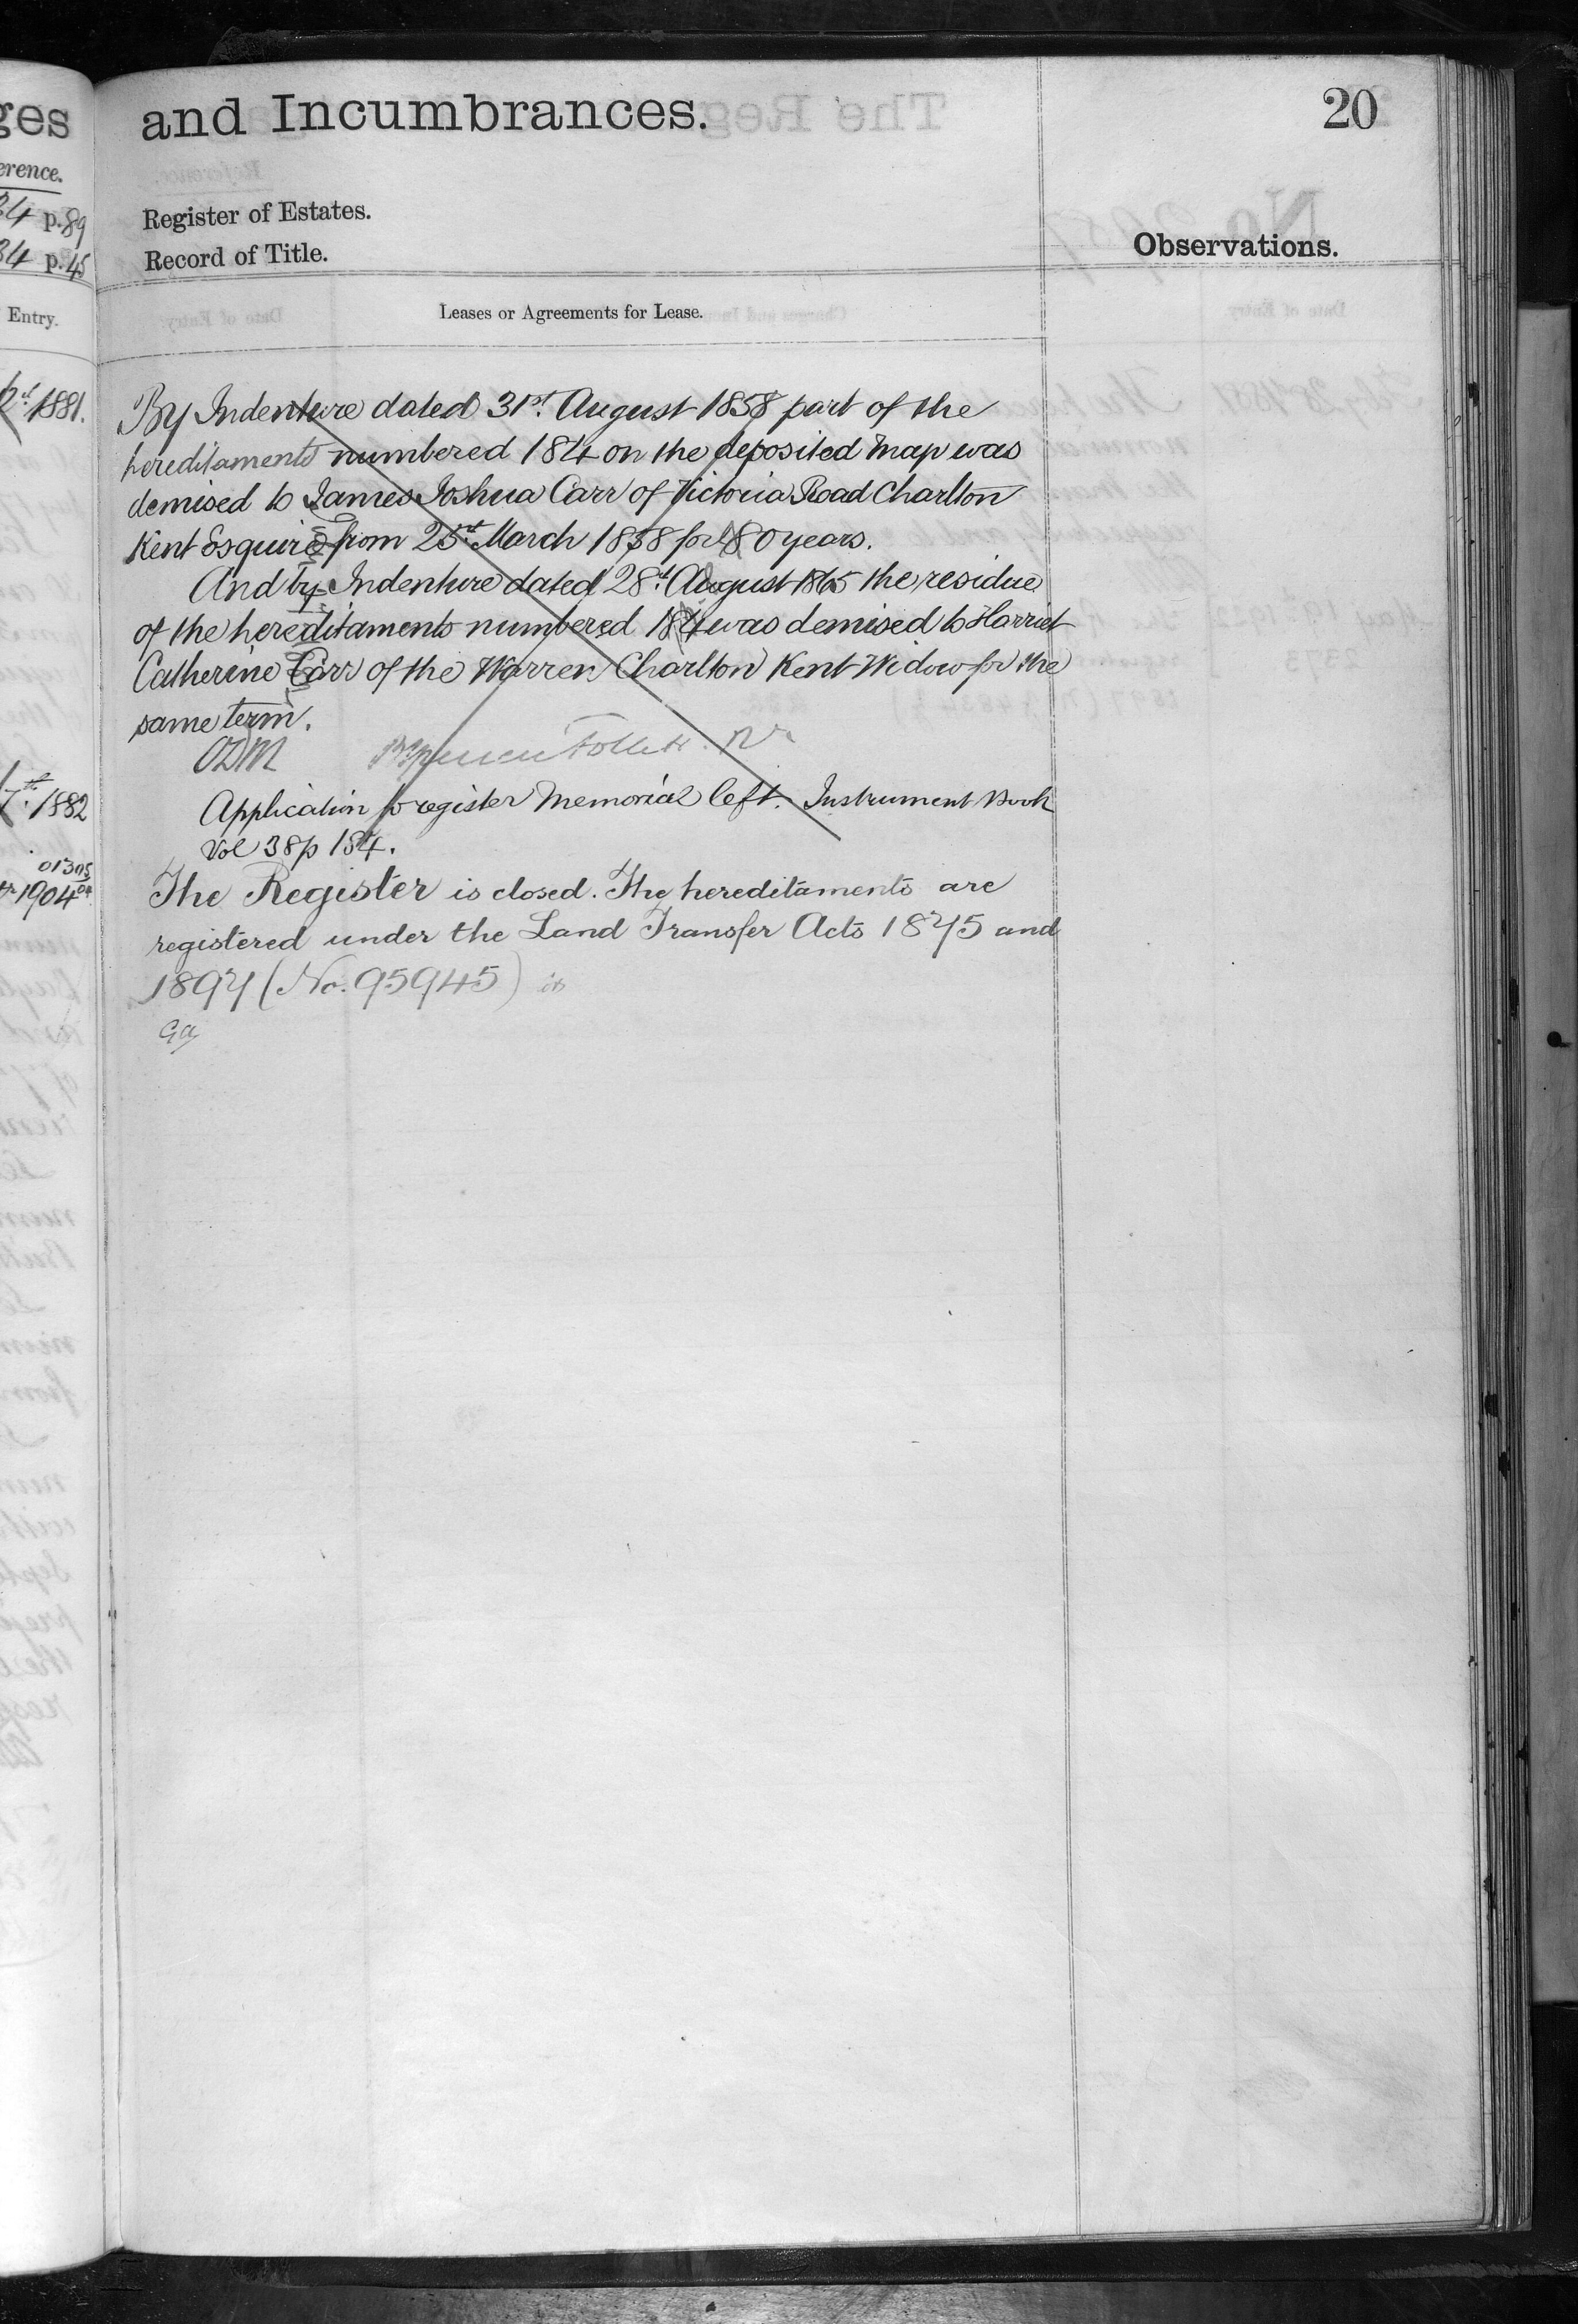 ges
erence.
34 p. 89
34 p. 45
Entry.
1881.
1882
01305
1904
and Incumbrances.
20
Register of Estates.
Record of Title.
Observations.
Leases or Agreements for Lease.
By Indenture dated 31st. August 1858 part of the
hereditaments numbered 184 on the deposited Map was
demised to James Joshua Carr of Victoria Road Charlton
Kent Esquire from 25th. March 1858 for 80 years.
And by Indenture dated 28th. August 1865 the residue
of the hereditaments numbered 184 was demised to Harriet
Catherine Carr of the Warren Charlton Kent Widow for the
same term.
ODM
Application to register Memorial left. Instrument Book
Vol 38 p 184.
The Register is closed. The hereditaments are
registered under the Land Transfer Acts 1875 and
1897 (No. 95945)